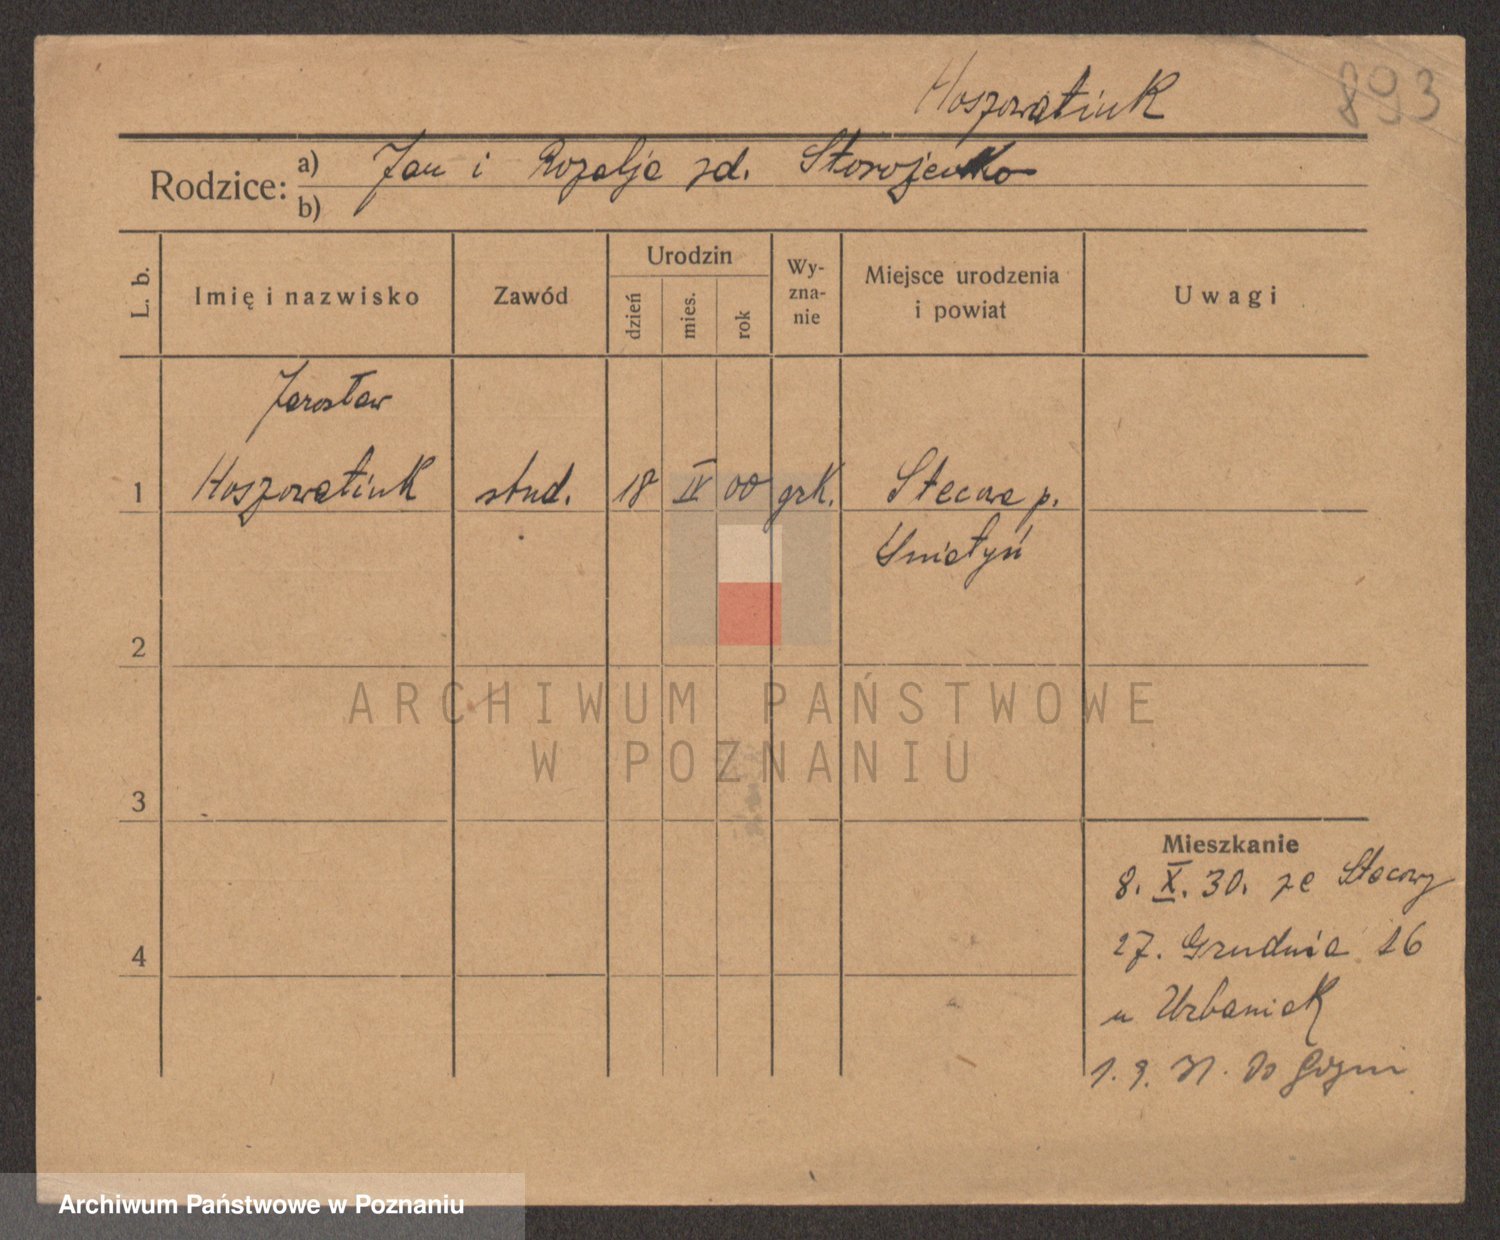 Hoszowatiuk
893
Rodzice: a) Jan i Rozalja zd. Storożenko
b)
L. b.
Imię i nazwisko
Zawód
Urodzin
dzień
mies.
rok
Wy-
zna-
nie
Miejsce urodzenia
i powiat
Uwagi
Jarosław
1 Hoszowatiuk stud. 18 IV 00 grk. Stecowa p.
Śniatyń
2
3
4
Mieszkanie
8. X. 30. ze Stecowy
27. Grudnia 16
u Urbaniak
1. 9. 31. do Gdyni
ARCHIWUM PAŃSTWOWE
W POZNANIU
Archiwum Państwowe w Poznaniu